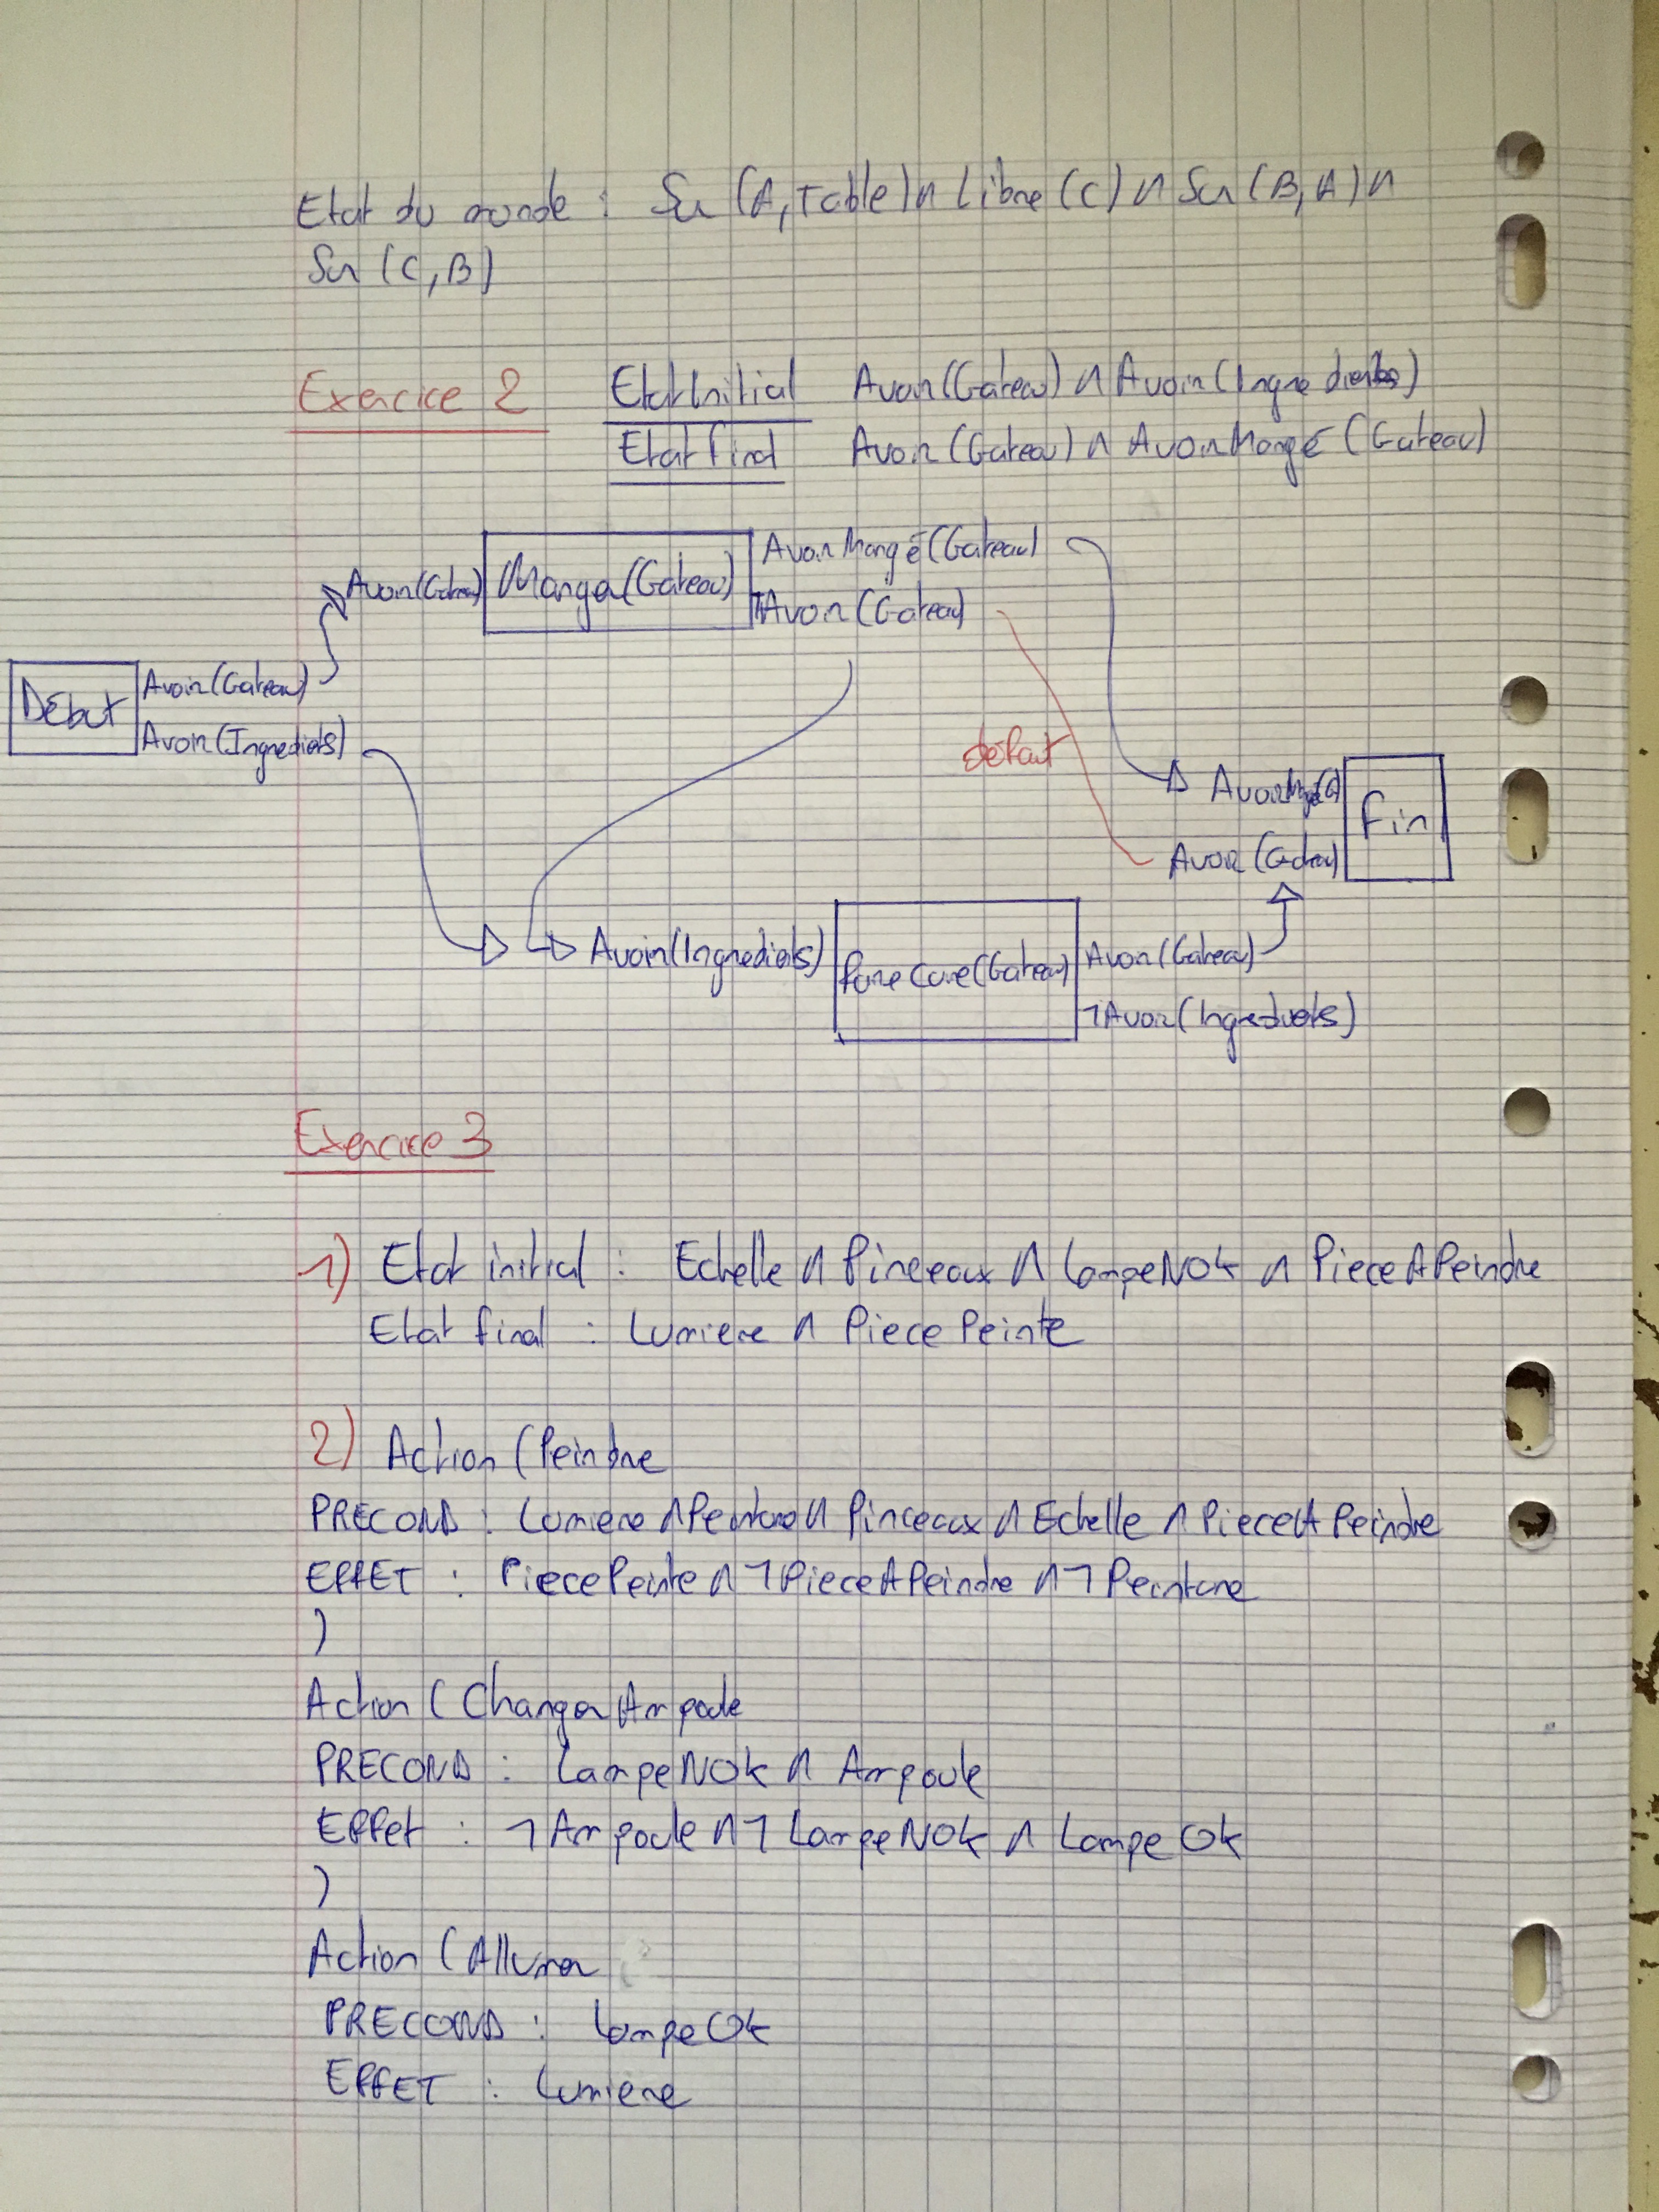 Etat du monde : Sur (A, Table) ∧ Libre (C) ∧ Sur (B, A) ∧
Sur (C, B)
Exercice 2
Etat Initial Avoir (Gateau) ∧ Avoir (Ingredients)
Etat final Avoir (Gateau) ∧ AvoirMangé (Gateau)
Avoir (Gateau) Manger (Gateau) AvoirMangé (Gateau)
¬Avoir (Gateau)
Début Avoir (Gateau)
Avoir (Ingredients)
défaut
AvoirMangé (G) Fin
Avoir (Gateau)
Avoir (Ingredients) faire Cuire (Gateau) Avoir (Gateau)
¬Avoir (Ingredients)
Exercice 3
1) Etat initial : Echelle ∧ Pinceaux ∧ LampeNOk ∧ PieceAPeindre
Etat final : Lumiere ∧ Piece Peinte
2) Action (Peindre
PRECOND : Lumiere ∧ Peinture ∧ Pinceaux ∧ Echelle ∧ PieceAPeindre
EFFET : PiecePeinte ∧ ¬PieceAPeindre ∧ ¬Peinture
)
Action (Changer Ampoule
PRECOND : LampeNOk ∧ Ampoule
Effet : ¬Ampoule ∧ ¬LampeNOk ∧ LampeOk
)
Action (Allumer
PRECOND : LampeOk
EFFET : Lumiere